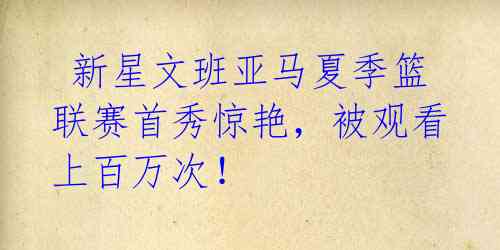 新星文班亚马夏季篮
联赛首秀惊艳，被观看
上百万次！